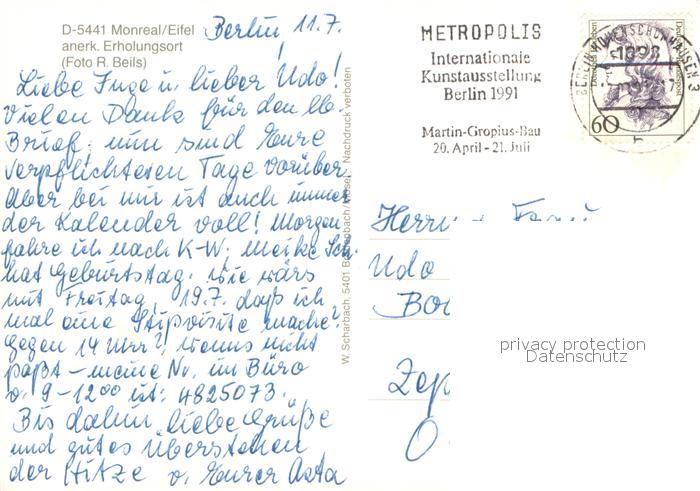 D-5441 Monreal/Eifel
anerk. Erholungsort
(Foto R. Beils)
Berlin, 11.7.
Liebe Inge u. lieber Udo!
Vielen Dank für den lb.
Brief: nun sind Eure
verpflichteten Tage vorüber
Aber bei mir ist auch immer
der Kalender voll! Morgen
fahre ich nach K-W, Meike Sch.
hat Geburtstag. Wie wärs
mit Freitag, 19.7. daß ich
mal eine Stipvisite mache?
gegen 14 Uhr?, wenns nicht
paßt – meine Nr. im Büro
v. 9-12⁰⁰ ist: 4825073.
Bis dahin liebe Grüße
und gutes Überstehen
der Hitze v. Eurer Asta
W. Scharbach, 5401 Nachdruck verboten
METROPOLIS
Internationale
Kunstausstellung
Berlin 1991
Martin-Gropius-Bau
20. April - 21. Juli
BERLIN HOHENSCHÖNHAUSEN 3
1093
Deutsche Bundespost
60
h
Herrn u.
Udo
privacy protection
Datenschutz